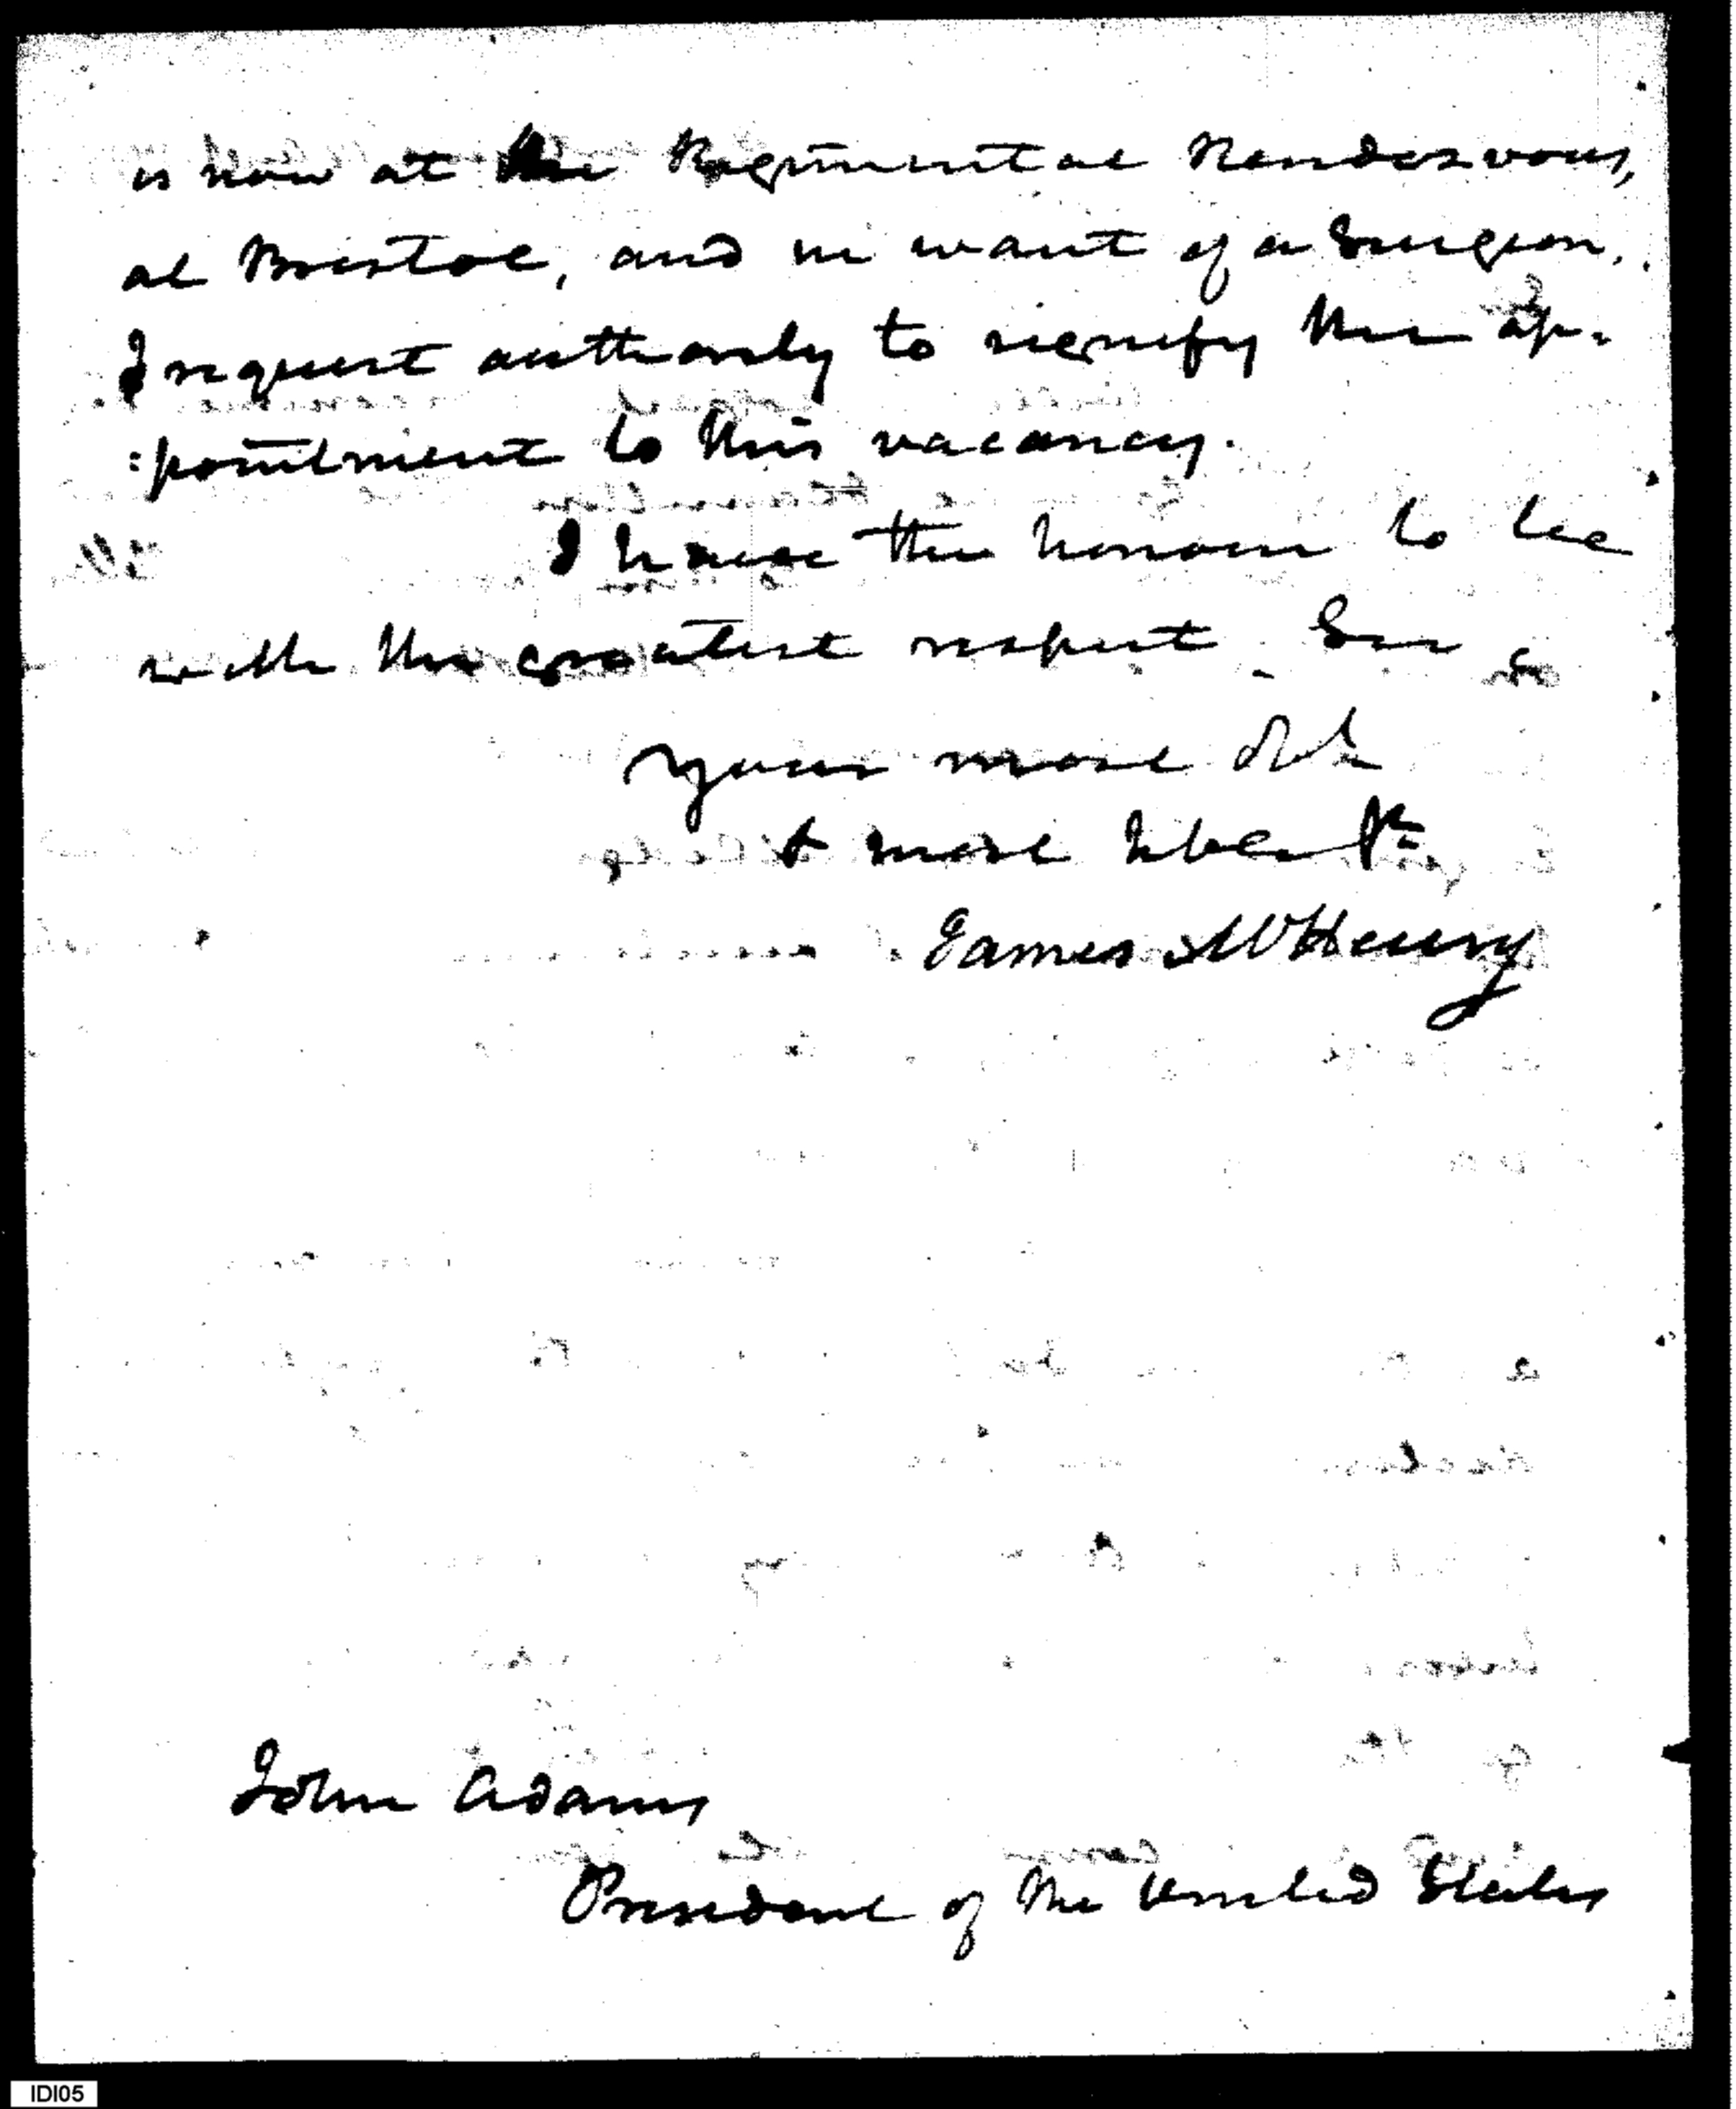 is now at the Regimental Rendezvous,
at Bristol, and in want of a Surgeon.
I request authority to signify the ap-
:pointment to this vacancy.
I have the honour to be
with the greatest respect Sir
your most Obt
& most hble St
James McHenry
John Adams
President of the United States
IDI05